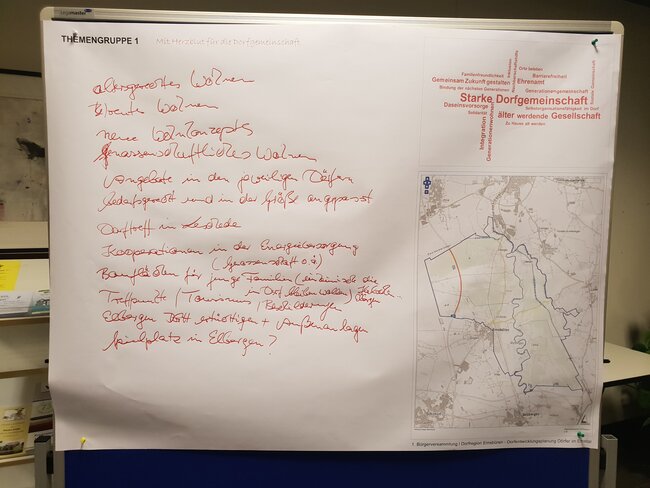 Legamaster
THEMENGRUPPE 1
Mit Herzblut für die Dorfgemeinschaft
altersgerechtes Wohnen
Betreutes Wohnen
neue Wohnkonzepte
genossenschaftliches Wohnen
Angebote in den jeweiligen Dörfern
bedarfsgerecht und in der Größe angepasst
Dorftreff in
Kooperationen in der Energieversorgung
(Genossenschaft o.ä)
Bauflächen für junge Familien die
im Dorf bleiben wollen)
Treffpunkte / Tourismus / Beschilderungen
Elbergen ertüchtigen + Außenanlagen
Spielplatz in Elbergen?
Familienfreundlichkeit
Orte beleben
Gemeinsam Zukunft gestalten
Barrierefreiheit
Ehrenamt
Bindung der nächsten Generationen
Generationengemeinschaft
Starke Dorfgemeinschaft
Daseinsvorsorge
Selbstorganisationsfähigkeit im Dorf
Solidarität
älter werdende Gesellschaft
Zu Hause alt werden
Integration
Generationenwohnen
Soziale Gemeinschaft
1. Bürgerversammlung I Dorfregion Emsbüren - Dorfentwicklungsplanung Dörfer im Emstal